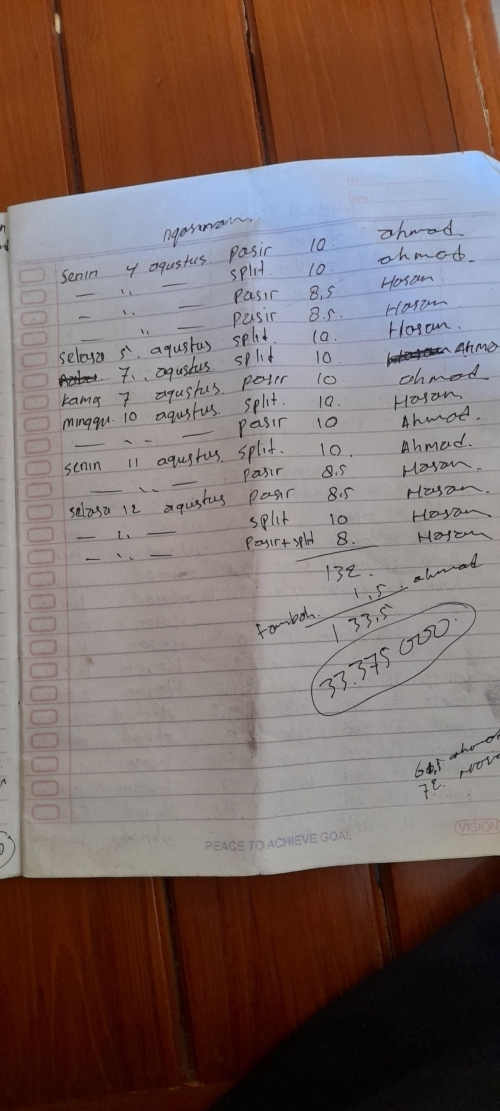 senin 4 agustus pasir 10 ahmad
— ,, — split 10. ahmad.
- ,, — pasir 8,5 Hasan
— ,, — pasir 8,5. Hasan
selasa 5. agustus split. 10. Hasan.
7. agustus. split 10 Ahma
kamis 7 agustus pasir 10 ahmad
minggu. 10 agustus. split. 10. Hasan
— ,, — pasir 10 Ahmad.
senin 11 agustus. split. 10. Ahmad.
— ,, — pasir 8,5 Hasan
selasa 12 agustus pasir 8.5 Hasan.
— ,, — split 10 Hasan
- ,, — pasir+split 8. Hasan
132.
tambah. 1,5. ahmad
133,5
33.375 000.
ahmad
72.
PEACE TO ACHIEVE GOAL
VISION